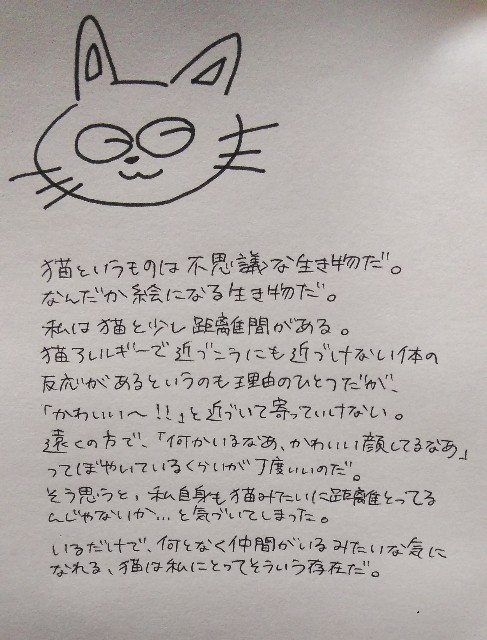 猫というものは不思議な生き物だ。
なんだか絵になる生き物だ。
私は猫と少し距離間がある。
猫アレルギーで近づこうにも近づけない体の
反応があるというのも理由のひとつだが、
「かわいい〜!!」と近づいて寄っていけない。
遠くの方で、「何かいるなあ、かわいい顔してるなあ」
ってぼやいているくらいが丁度いいのだ。
そう思うと、私自身も猫みたいに距離とってる
んじゃないか…と気づいてしまった。
いるだけで、何となく仲間がいるみたいな気に
なれる、猫は私にとってそういう存在だ。